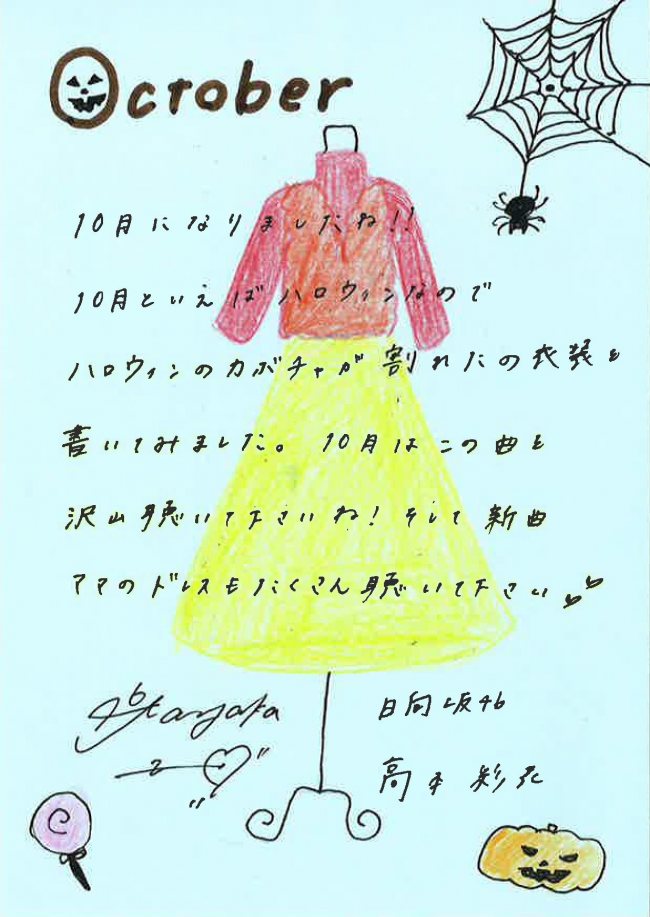 October
10月になりましたね!!
10月といえばハロウィンなので
ハロウィンのカボチャが割れたの衣装を
書いてみました。10月はこの曲を
沢山聴いて下さいね!そして新曲
ママのドレスもたくさん聴いて下さい
日向坂46
高本彩花